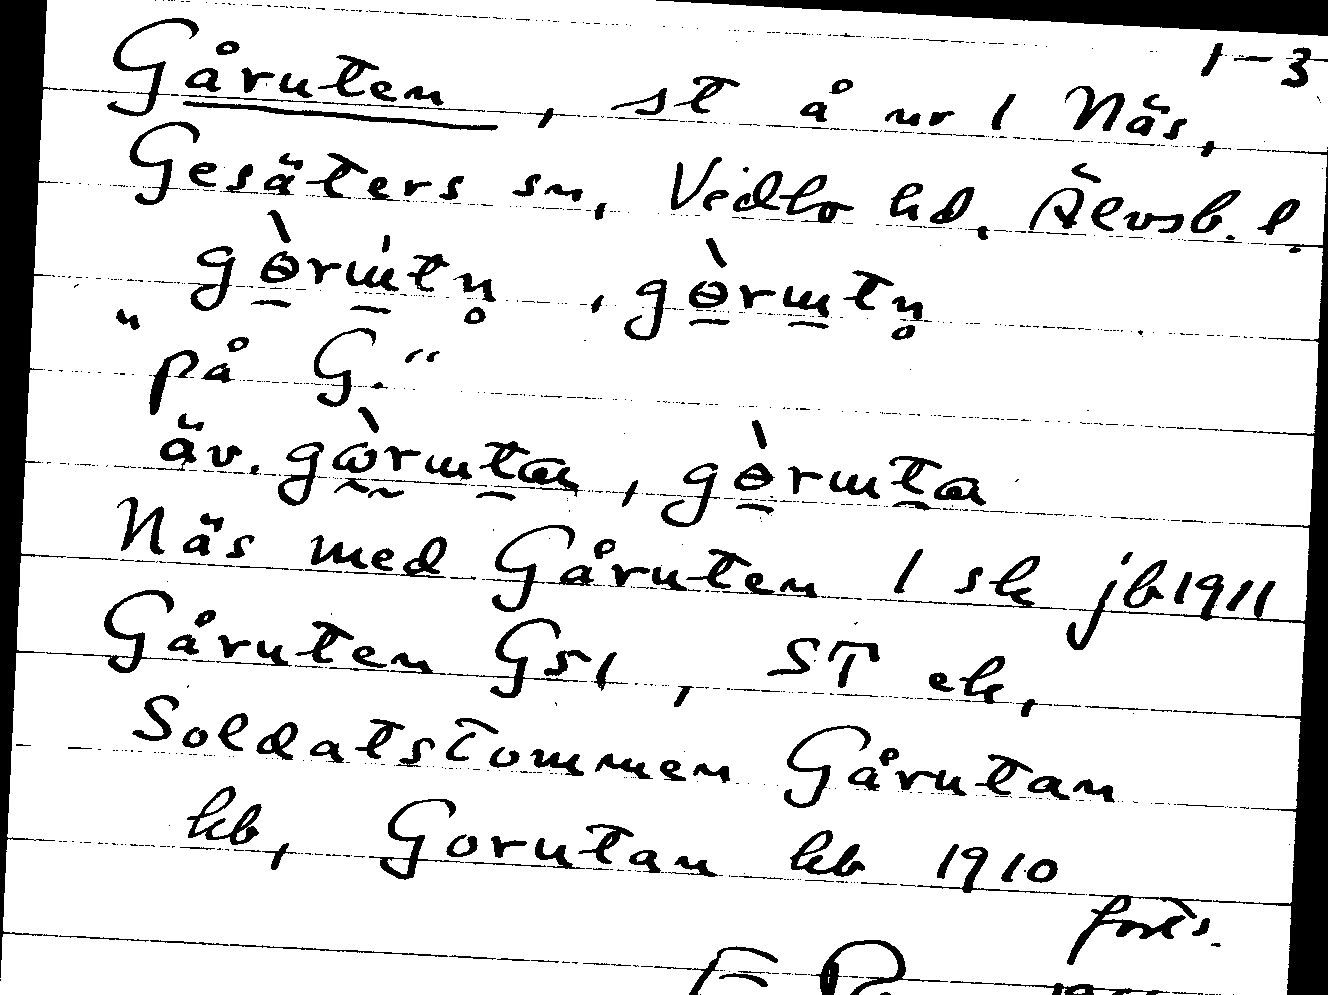 1-3
Gåruten, st å nr 1 Näs,
Gesäters sn, Vedbo hd, Älvsb. l.
gɵ̀rɯtn̥, gɵ̀rɯtn̥
"på G."
äv. gɷ̀rɯta, gɵ̀rɯta
Näs med Gåruten 1 sk jb 1911
Gåruten GS1, ST ek,
Soldatstommen Gårutan
kb, Gorutan kb 1910
forts.